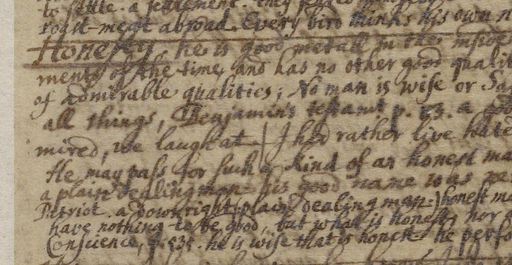 to settle a settlement. they
roast-meat abroad. Every bird thinks his own n
Honesty, he is good metall in the inside
ments of the time, and has no other good qualit
of admirable qualities; No man is wise or Sa
all things, Benjamin's testamt p. 53. a
mired, we laugh at. | I had rather live hated
He may pass for such a kind of an honest ma
a plain dealing man his good name was pe
Patriot. a downright plain dealing man. honest m
have nothing to be good, but what is honest, nor
Conscience, p. 535. he is wise that is honest he perfo